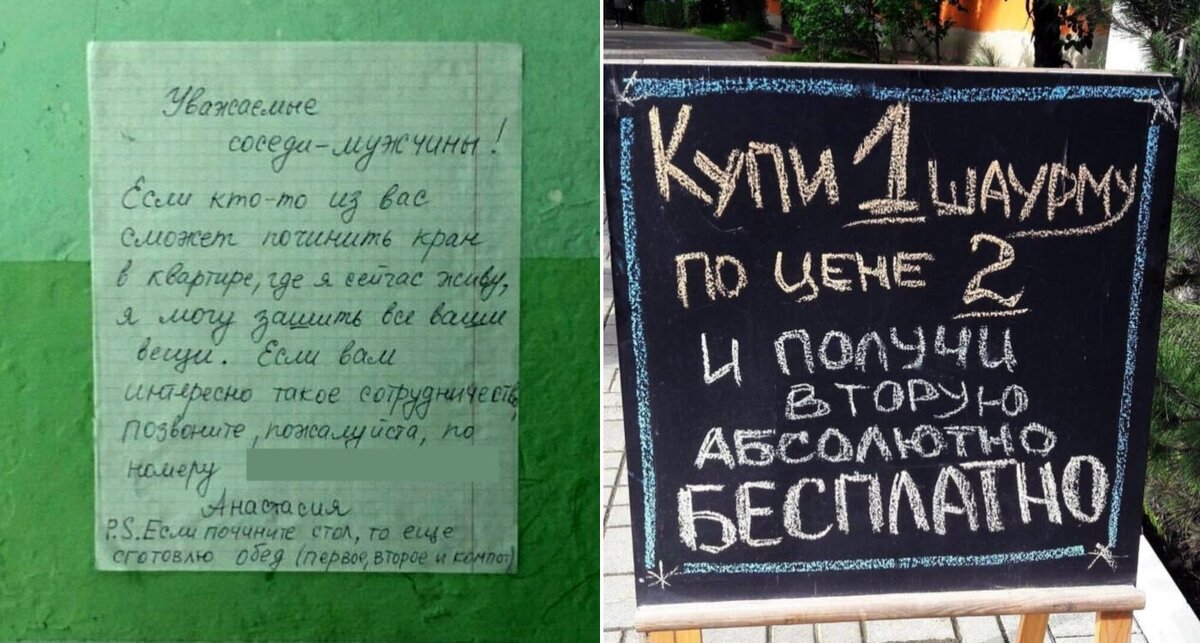 Уважаемые
соседи-мужчины!
Если кто-то из вас
сможет починить кран
в квартире, где я сейчас живу,
я могу зашить все ваши
вещи. Если вам
интересно такое сотрудничеств
позвоните, пожалуйста, по
номеру
Анастасия
P.S. Если почините стол, то еще
сготовлю обед (первое, второе и компот)
КУПИ 1 ШАУРМУ
ПО ЦЕНЕ 2
И ПОЛУЧИ
ВТОРУЮ
АБСОЛЮТНО
БЕСПЛАТНО